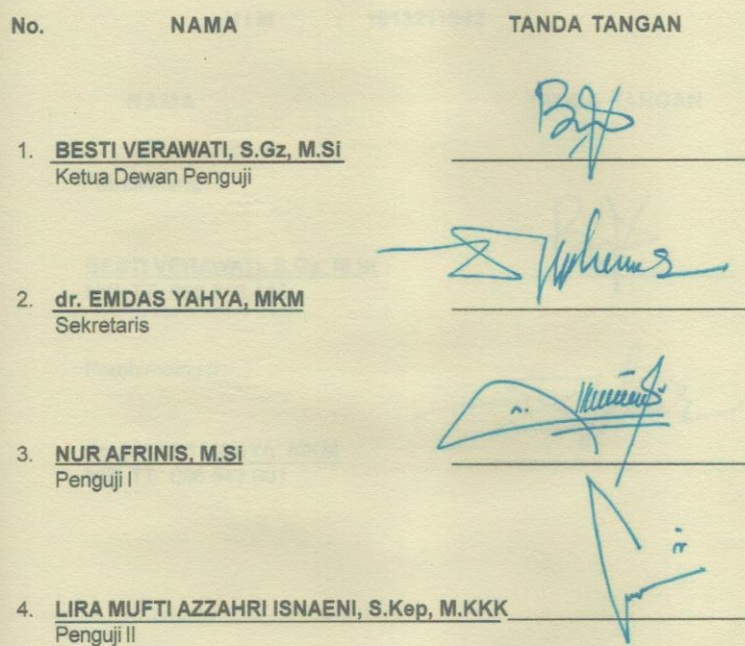 No. NAMA TANDA TANGAN
1. BESTI VERAWATI, S.Gz, M.Si
Ketua Dewan Penguji
2. dr. EMDAS YAHYA, MKM
Sekretaris
3. NUR AFRINIS, M.Si
Penguji I
4. LIRA MUFTI AZZAHRI ISNAENI, S.Kep, M.KKK
Penguji II